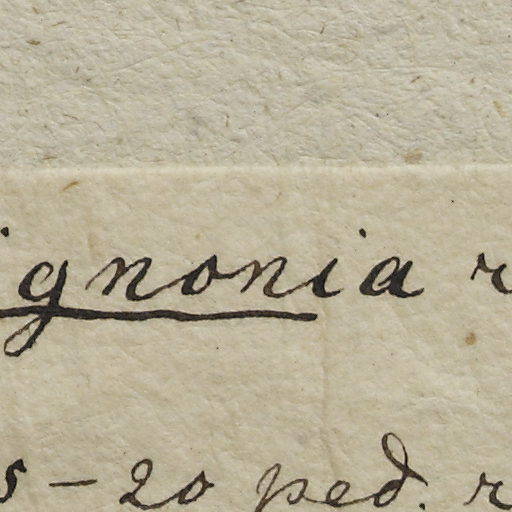 ignonia r
5 - 20 ped. r